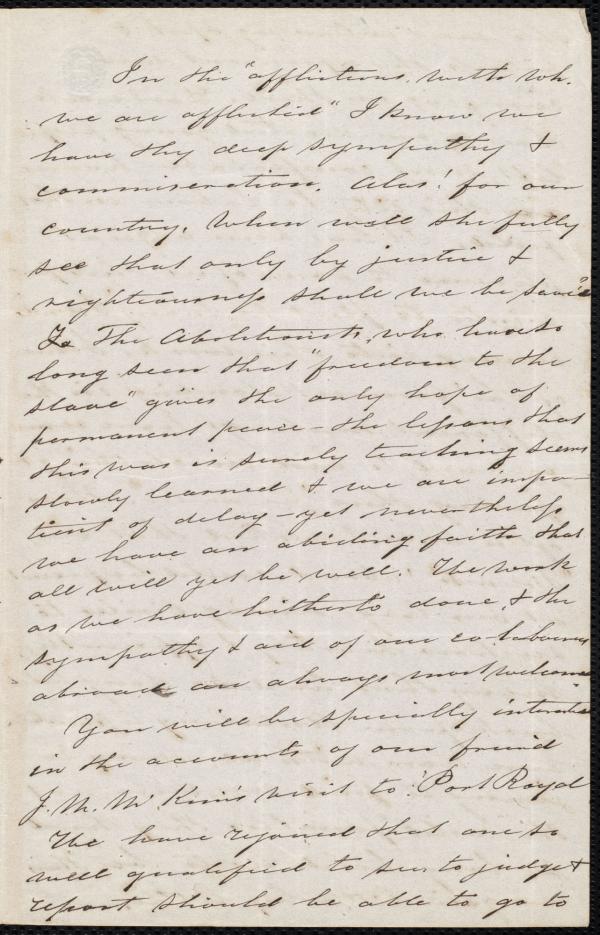 In the "afflictions with wh.
we are afflicted" I know we
have thy deep sympathy &
commiseration. Alas! for our
country. When will she fully
see that only by justice &
righteousness shall we be saved
To The Abolitionists, who have so
long seen that "freedom to the
slave" gives the only hope of
permanent peace - the lessons that
this war is surely teaching seems
slowly learned & we are impa-
tient of delay - yet nevertheless
we have an abiding faith that
all will yet be well. We work
as we have hitherto done, & the
sympathy & aid of our co-laborers
abroad are always most welcome
You will be specially interested
in the accounts of our friend
J. M. McKim's visit to Port Royal
We have rejoiced that one so
well qualified to see to judge &
report should be able to go to